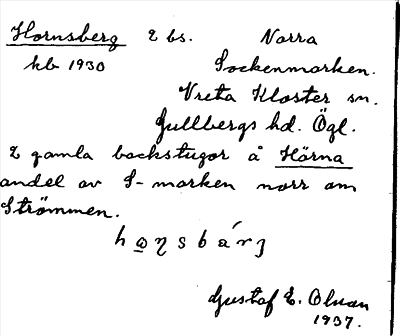 Hornsberg 2 bs. Norra
kb 1930 Sockenmarken.
Vreta Kloster sn.
Gullbergs hd. Ögl.
2 gamla backstugor å Hörna
andel av S-marken norr om
Strömmen.
Gustaf E. Olsson
1937.